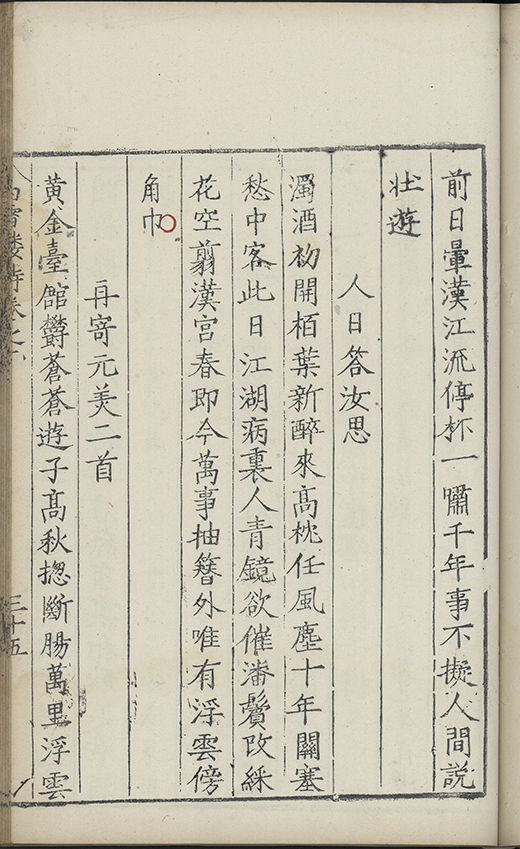 前日暈漢江流停桮一嘯千年事不擬人間說
壯遊
人日答汝思
濁酒初開栢葉新醉來高枕任風塵十年關塞
愁中客此日江湖病裏人青鏡欲催潘鬢改綵
花空翦漢宮春即今萬事抽簪外唯有浮雲傍
角巾
再寄元美二首
黃金臺館欝蒼蒼遊子高秋揔斷腸萬里浮雲
雪樓詩卷之
三十五